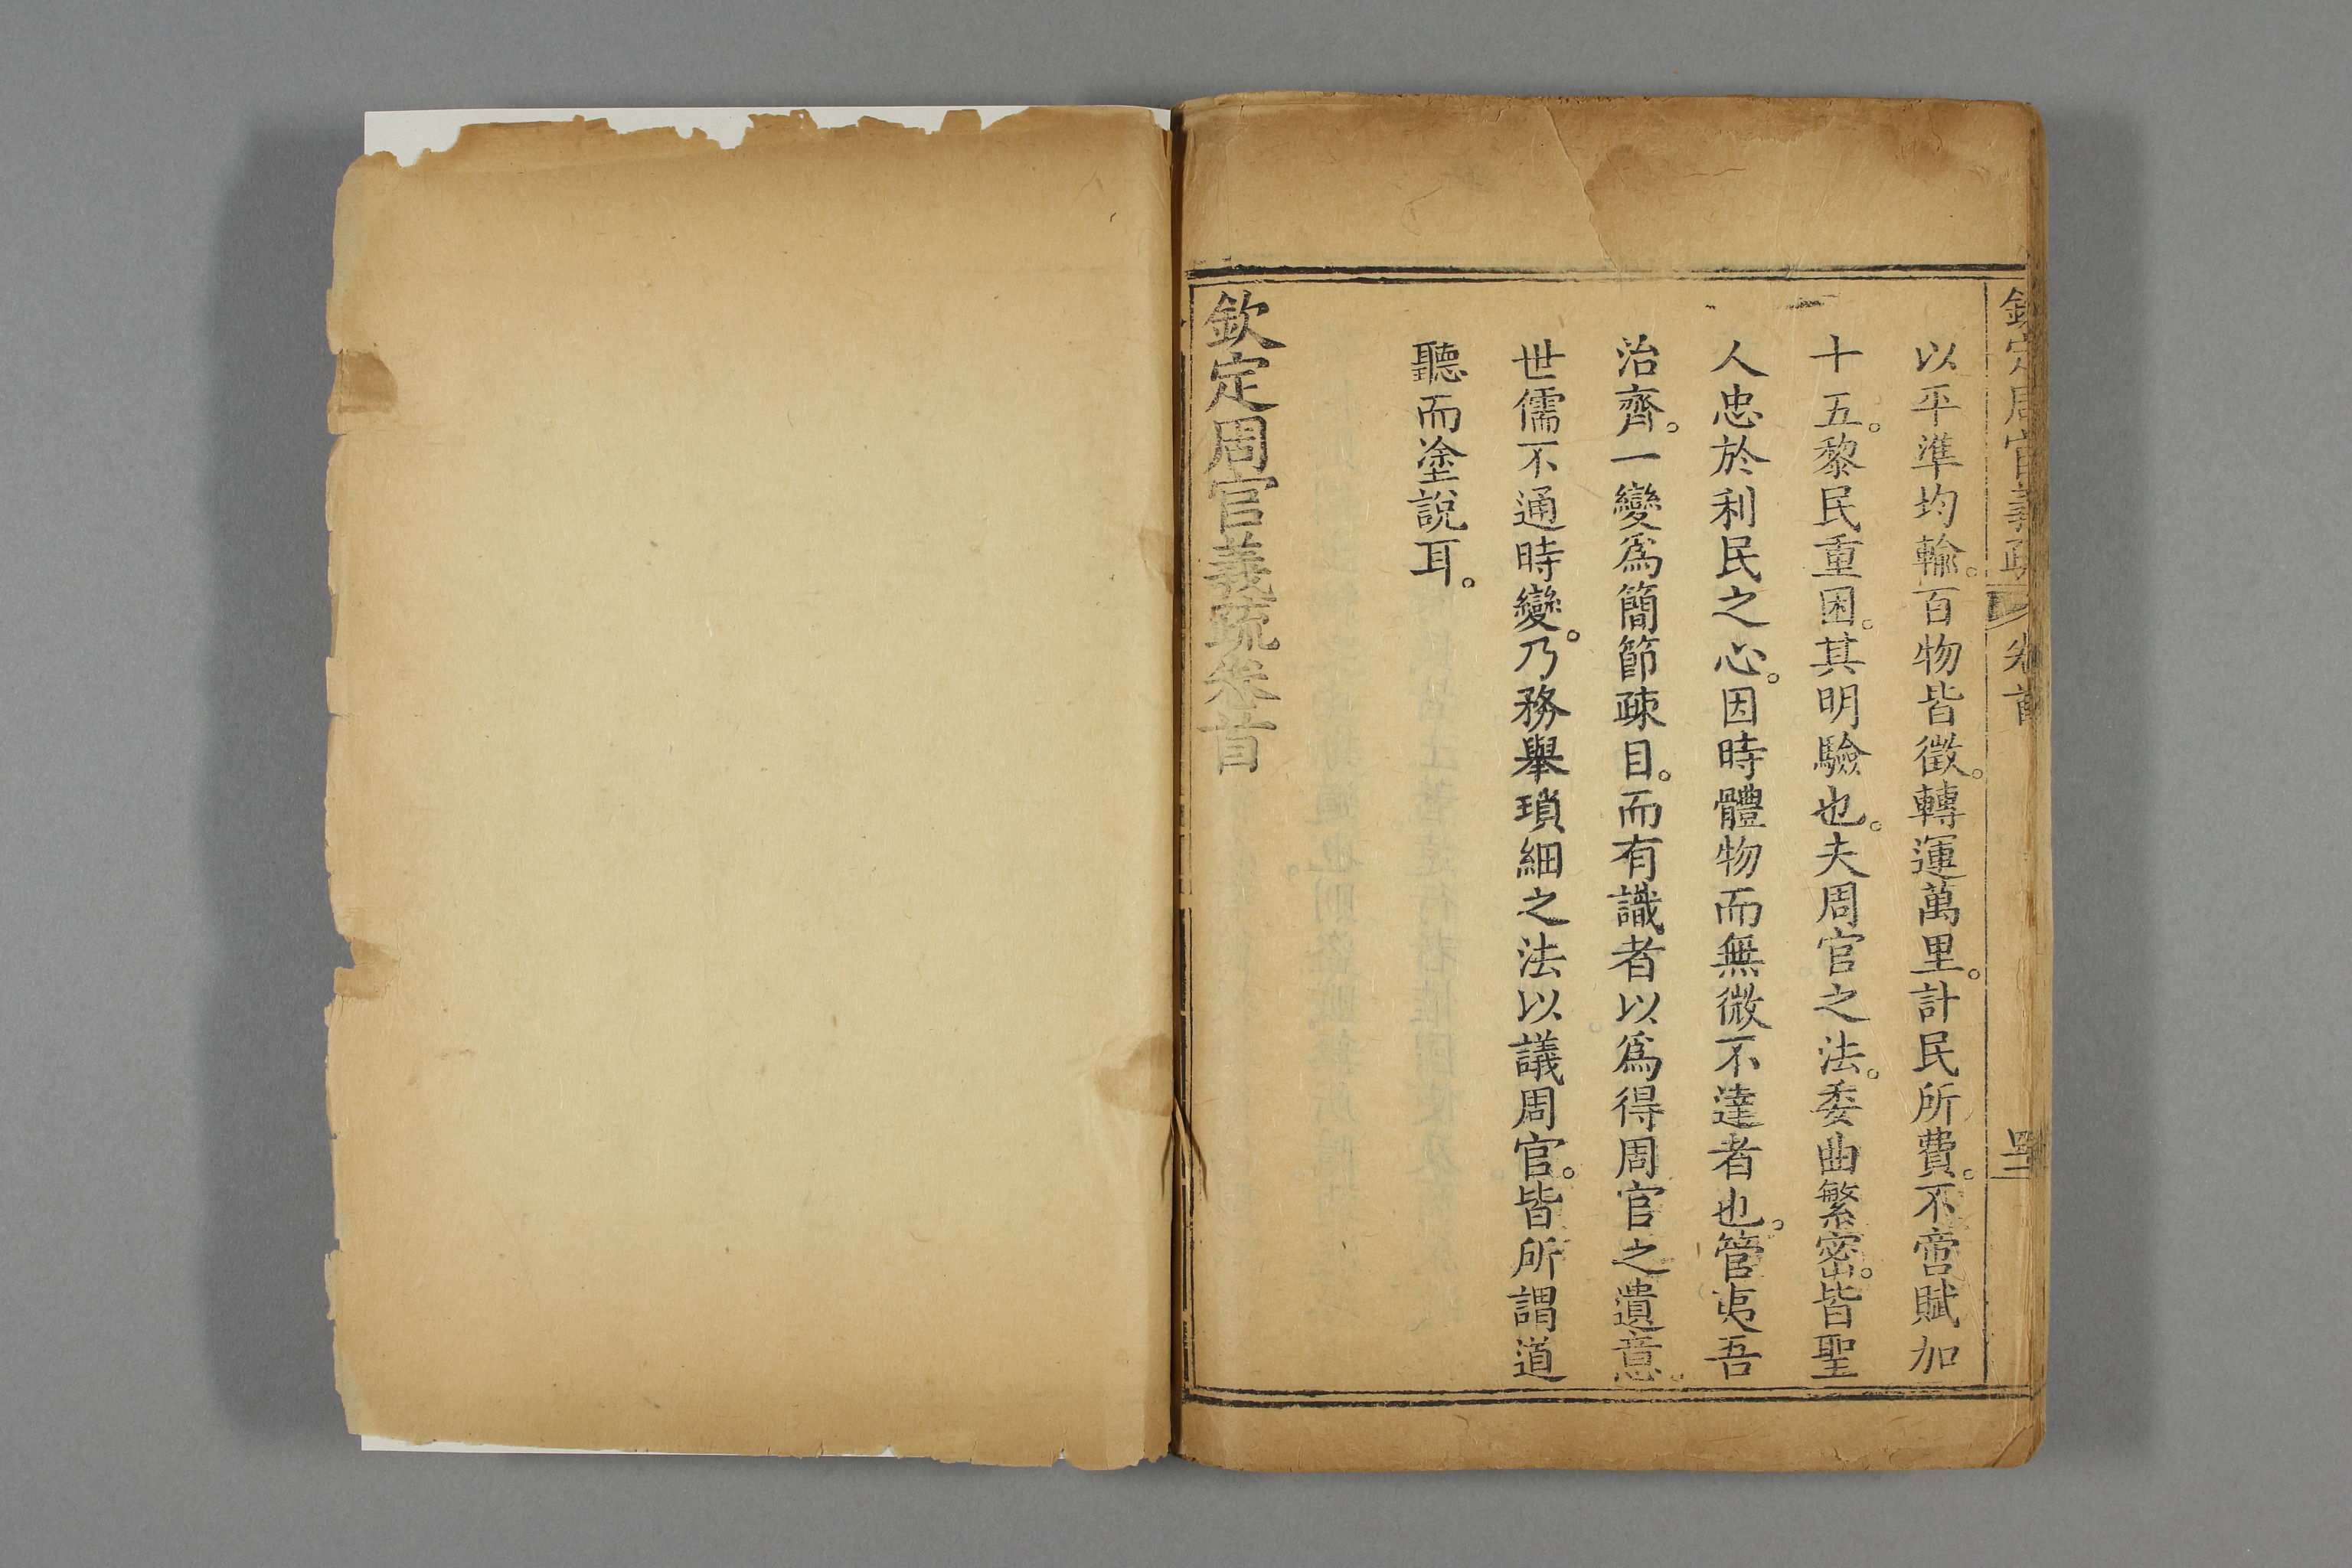 欽定周官義疏 卷首
以平準均輸。百物皆徵。轉運萬里。計民所費。不啻賦加
十五。黎民重困。其明驗也。夫周官之法。委曲繁密。皆聖
人忠於利民之心。因時體物而無微不達者也。管夷吾
治齊。一變爲簡節疎目。而有識者以爲得周官之遺意。
世儒不通時變。乃務舉瑣細之法以議周官。皆所謂道
聽而塗說耳。
欽定周官義疏卷首